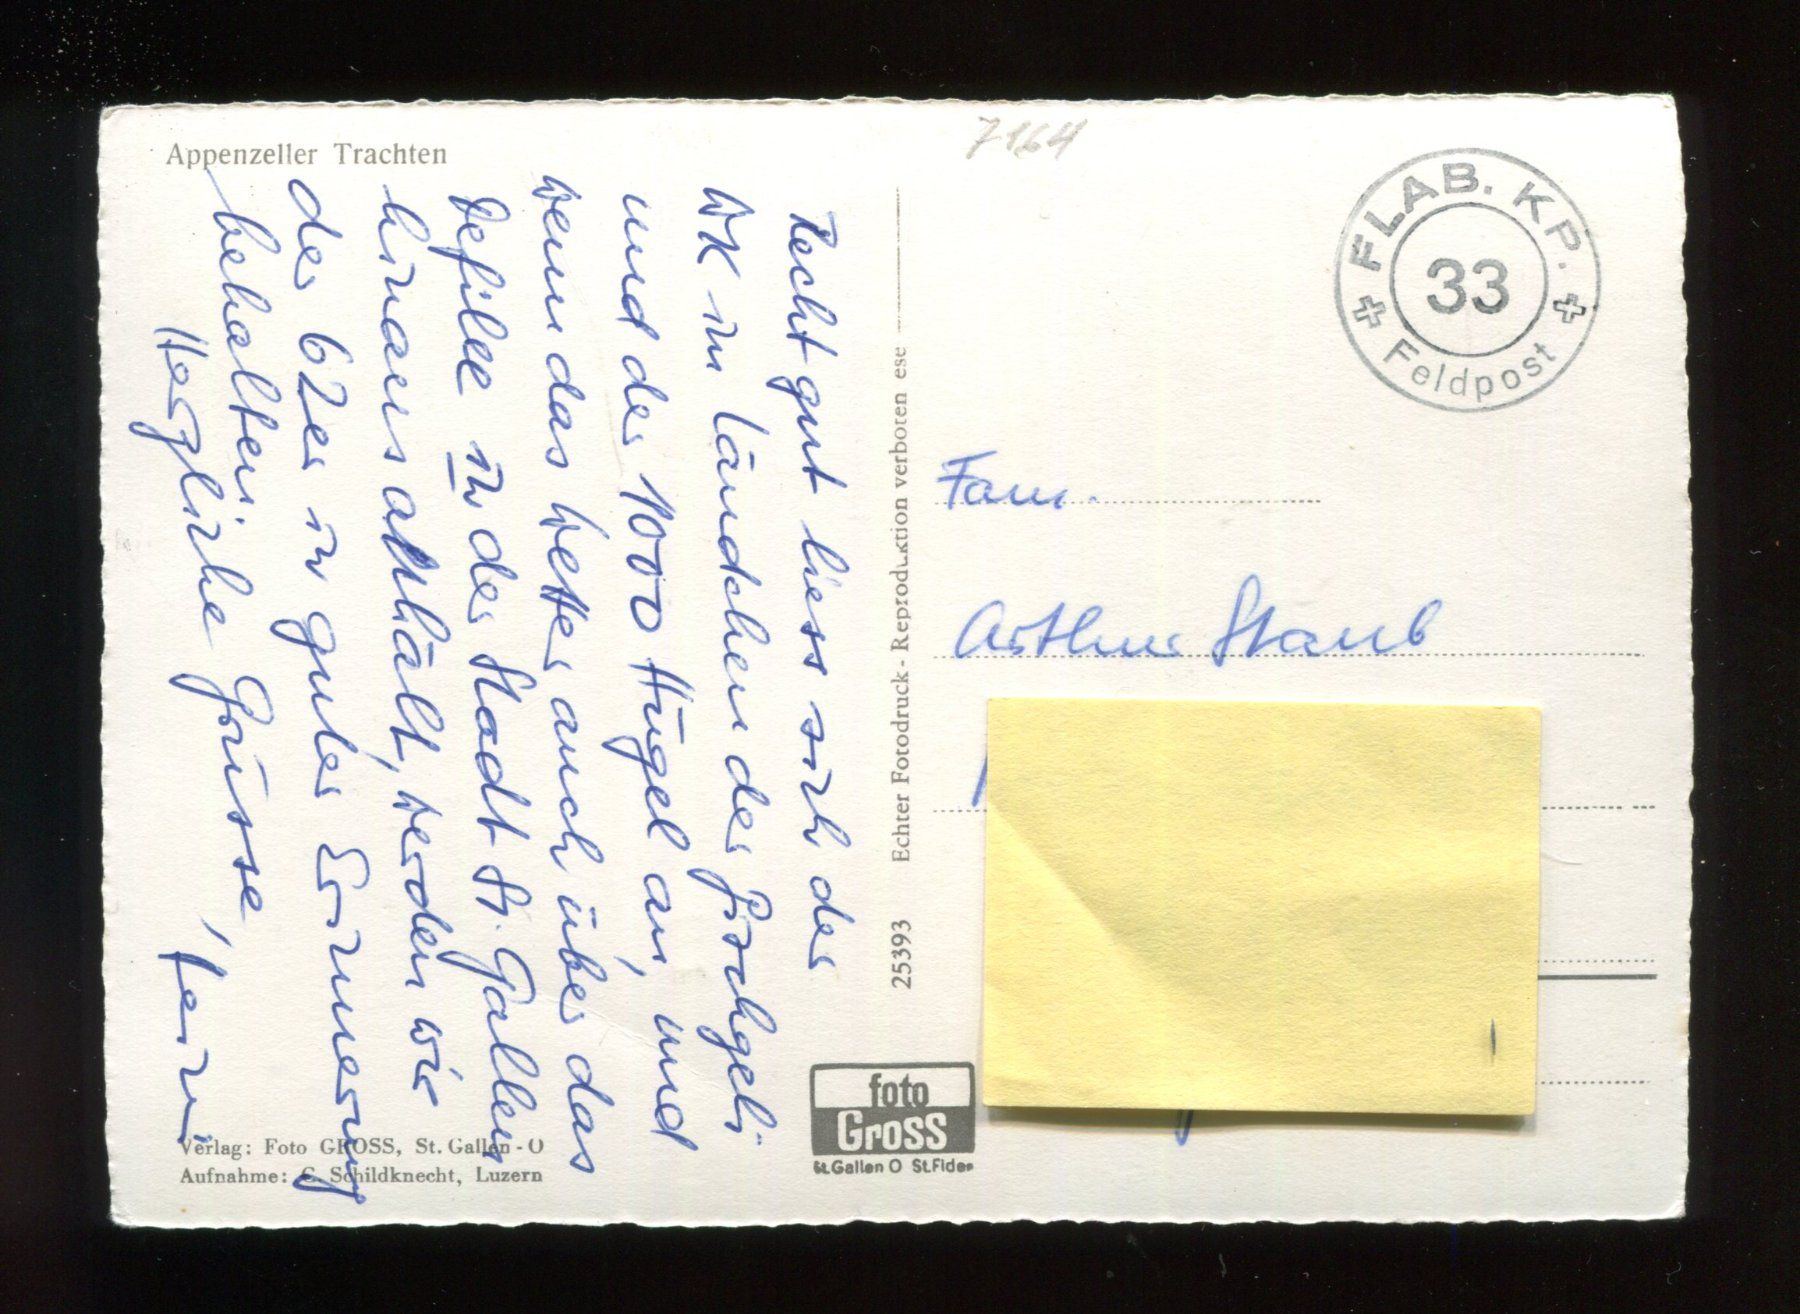 Appenzeller Trachten
7164
FLAB. KP.
33
Feldpost
Recht gut liess sich der
WK im Ländchen der Hörgeli
und der 1000 Hügel an, und
wenn das Wetter auch über das
Defilee in der Stadt St. Gallen
hinaus anhält, werden wir
der 62er in guter Erinnerung
behalten.
Herzliche Grüsse,
Fam.
Arthur Staub
25393 Echter Fotodruck - Reproduktion verboten ese
foto
Gross
St.Gallen O St.Fiden
Verlag: Foto GROSS, St. Gallen - O
Aufnahme: C. Schildknecht, Luzern